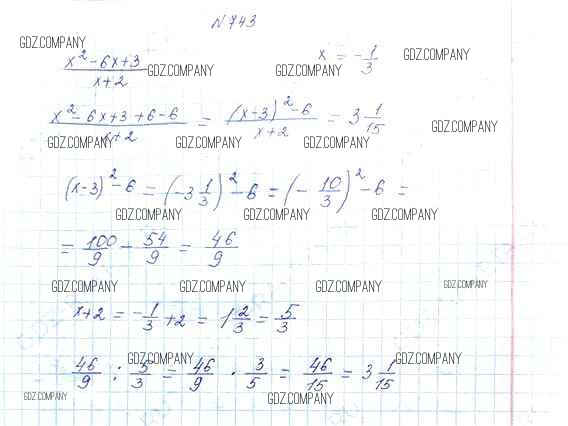 N 743
GDZ.COMPANY GDZ.COMPANY
(x² - 6x + 3)/(x + 2) x = -1/3
GDZ.COMPANY GDZ.COMPANY
(x² - 6x + 3 + 6 - 6)/(x + 2) = ((x - 3)² - 6)/(x + 2) = 3 1/15
GDZ.COMPANY
GDZ.COMPANY GDZ.COMPANY GDZ.COMPANY
(x - 3)² - 6 = (-3 1/3)² - 6 = (-10/3)² - 6 =
GDZ.COMPANY GDZ.COMPANY GDZ.COMPANY
= 100/9 - 54/9 = 46/9
GDZ.COMPANY GDZ.COMPANY GDZ.COMPANY
x + 2 = -1/3 + 2 = 1 2/3 = 5/3
GDZ.COMPANY GDZ.COMPANY
46/9 : 5/3 = 46/9 · 3/5 = 46/15 = 3 1/15
GDZ.COMPANY GDZ.COMPANY